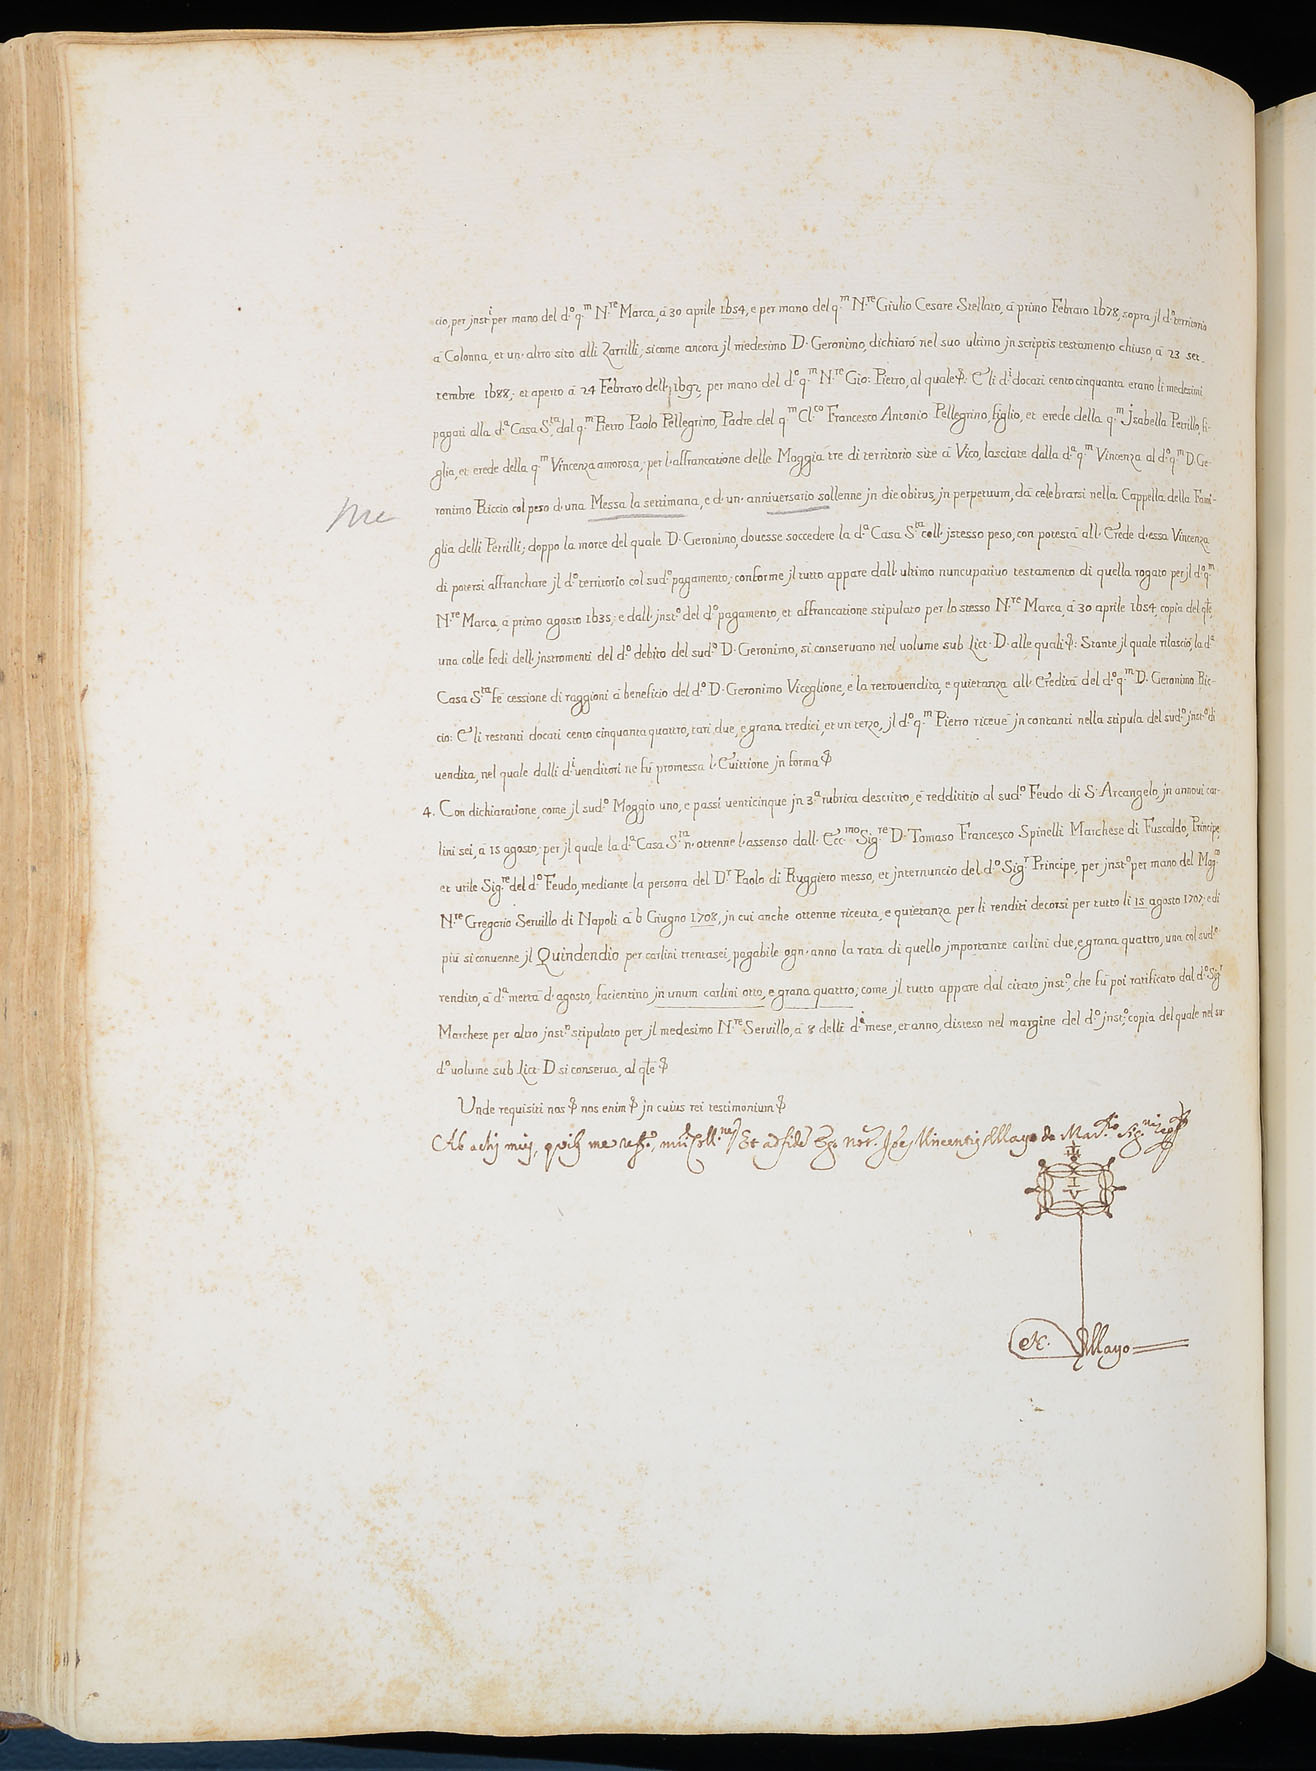 cio, per jnst.ⁱ per mano del d.º q.ᵐ N.ʳᵉ Marca, á 30 aprile 1654, e per mano del q.ᵐ N.ʳᵉ Giulio Cesare Stellato, á primo Febraro 1678, sopra jl d.º territorio
á Colonna, et un' altro sito alli Zarrilli; sicome ancora jl medesimo D. Geronimo, dichiarò nel suo ultimo jn scriptis testamento chiuso, á 23 set-
tembre 1688; et aperto á 24 Febraro dell' 1692, per mano del d.º q.ᵐ N.ʳᵉ Gio: Pietro, al quale &: E' li d.ⁱ docati cento cinquanta erano li medesimi
pagati alla d.ª Casa S.ᵗᵃ, dal q.ᵐ Pietro Paolo Pellegrino, Padre del q.ᵐ Cl.ᶜᵒ Francesco Antonio Pellegrino, figlio, et erede della q.ᵐ Jsabella Petrillo, fi-
glia, et erede della q.ᵐ Vincenza amorosa, per l'affrancatione delle Moggia tre di territorio site á Vico, lasciate dalla d.ª q.ᵐ Vincenza al d.º q.ᵐ D. Ge-
ronimo Riccio col peso d'una Messa la settimana, e d'un' anniversario sollenne jn die obitus, jn perpetuum, dá celebrarsi nella Cappella della Fami-
glia delli Petrilli; doppo la morte del quale D. Geronimo, douesse soccedere la d.ª Casa S.ᵗᵃ coll' jstesso peso, con potestá all' Erede d'essa Vincenza
di potersi affranchare jl d.º territorio col sud.º pagamento; conforme jl tutto appare dall' ultimo nuncupatiuo testamento di quella rogato per jl d.º q.ᵐ
N.ʳᵉ Marca, á primo agosto 1635; e dall' jnst.º del d.º pagamento, et affrancatione stipulato per lo stesso N.ʳᵉ Marca, á 30 aprile 1654, copia del qle,
una colle fedi dell' jnstromenti del d.º debito del sud.º D. Geronimo, si conseruano nel uolume sub Lict. D. alle quali &: Stante jl quale rilascio, la d.ª
Casa S.ᵗᵃ fé cessione di raggioni á beneficio del d.º D. Geronimo Viceglione, e la retrouendita, e quietanza all' Ereditá del d.º q.ᵐ D. Geronimo Ric-
cio: E' li restanti docati cento cinquanta quattro, tari due, e grana tredici, et un terzo, jl d.º q.ᵐ Pietro riceué jn contanti nella stipula del sud.º jnst.º di
uendita, nel quale dalli d.ⁱ uenditori ne fú promessa l'Euittione jn forma &
4. Con dichiaratione, come jl sud.º Moggio uno, e passi uenticinque jn 3.ª rubrica descritto, é reddititio al sud.º Feudo di S. Arcangelo, jn annoui car-
lini sei, á 15 agosto; per jl quale la d.ª Casa S.ᵗᵃ n' ottenne l'assenso dall' Ecc.ᵐᵒ Sig.ʳᵉ D. Tomaso Francesco Spinelli Marchese di Fuscaldo, Principe,
et utile Sig.ʳᵉ del d.º Feudo, mediante la persona del D.ʳ Paolo di Ruggiero messo, et jnternuncio del d.º Sig.ʳ Principe, per jnst.º per mano del Mag.ᵐ
N.ʳᵉ Gregorio Seruillo di Napoli á 6 Giugno 1708, jn cui anche ottenne riceuta, e quietanza per li renditi decorsi per tutto li 15 agosto 1707; e di
piú si conuenne jl Quindendio per carlini trentasei, pagabile ogn' anno la rata di quello jmportante carlini due, e grana quattro, una col sud.º
rendito, á d.ª mettá d'agosto, facientino jn unum carlini otto, e grana quattro; come jl tutto appare dal citato jnst.º, che fú poi ratificato dal d.º Sig.ʳ
Marchese per altro jnst.º stipulato per jl medesimo N.ʳᵉ Seruillo, á 8 delli d.ⁱ mese, et anno, disteso nel margine del d.º jnst.º; copia del quale nel su-
d.º uolume sub Lict. D si conserua, al qle &
Unde requisiti nos & nos enim & jn cuius rei testimonium &
Ab actis meis, Et ad fidé Ego Not.
I
V
Mayo